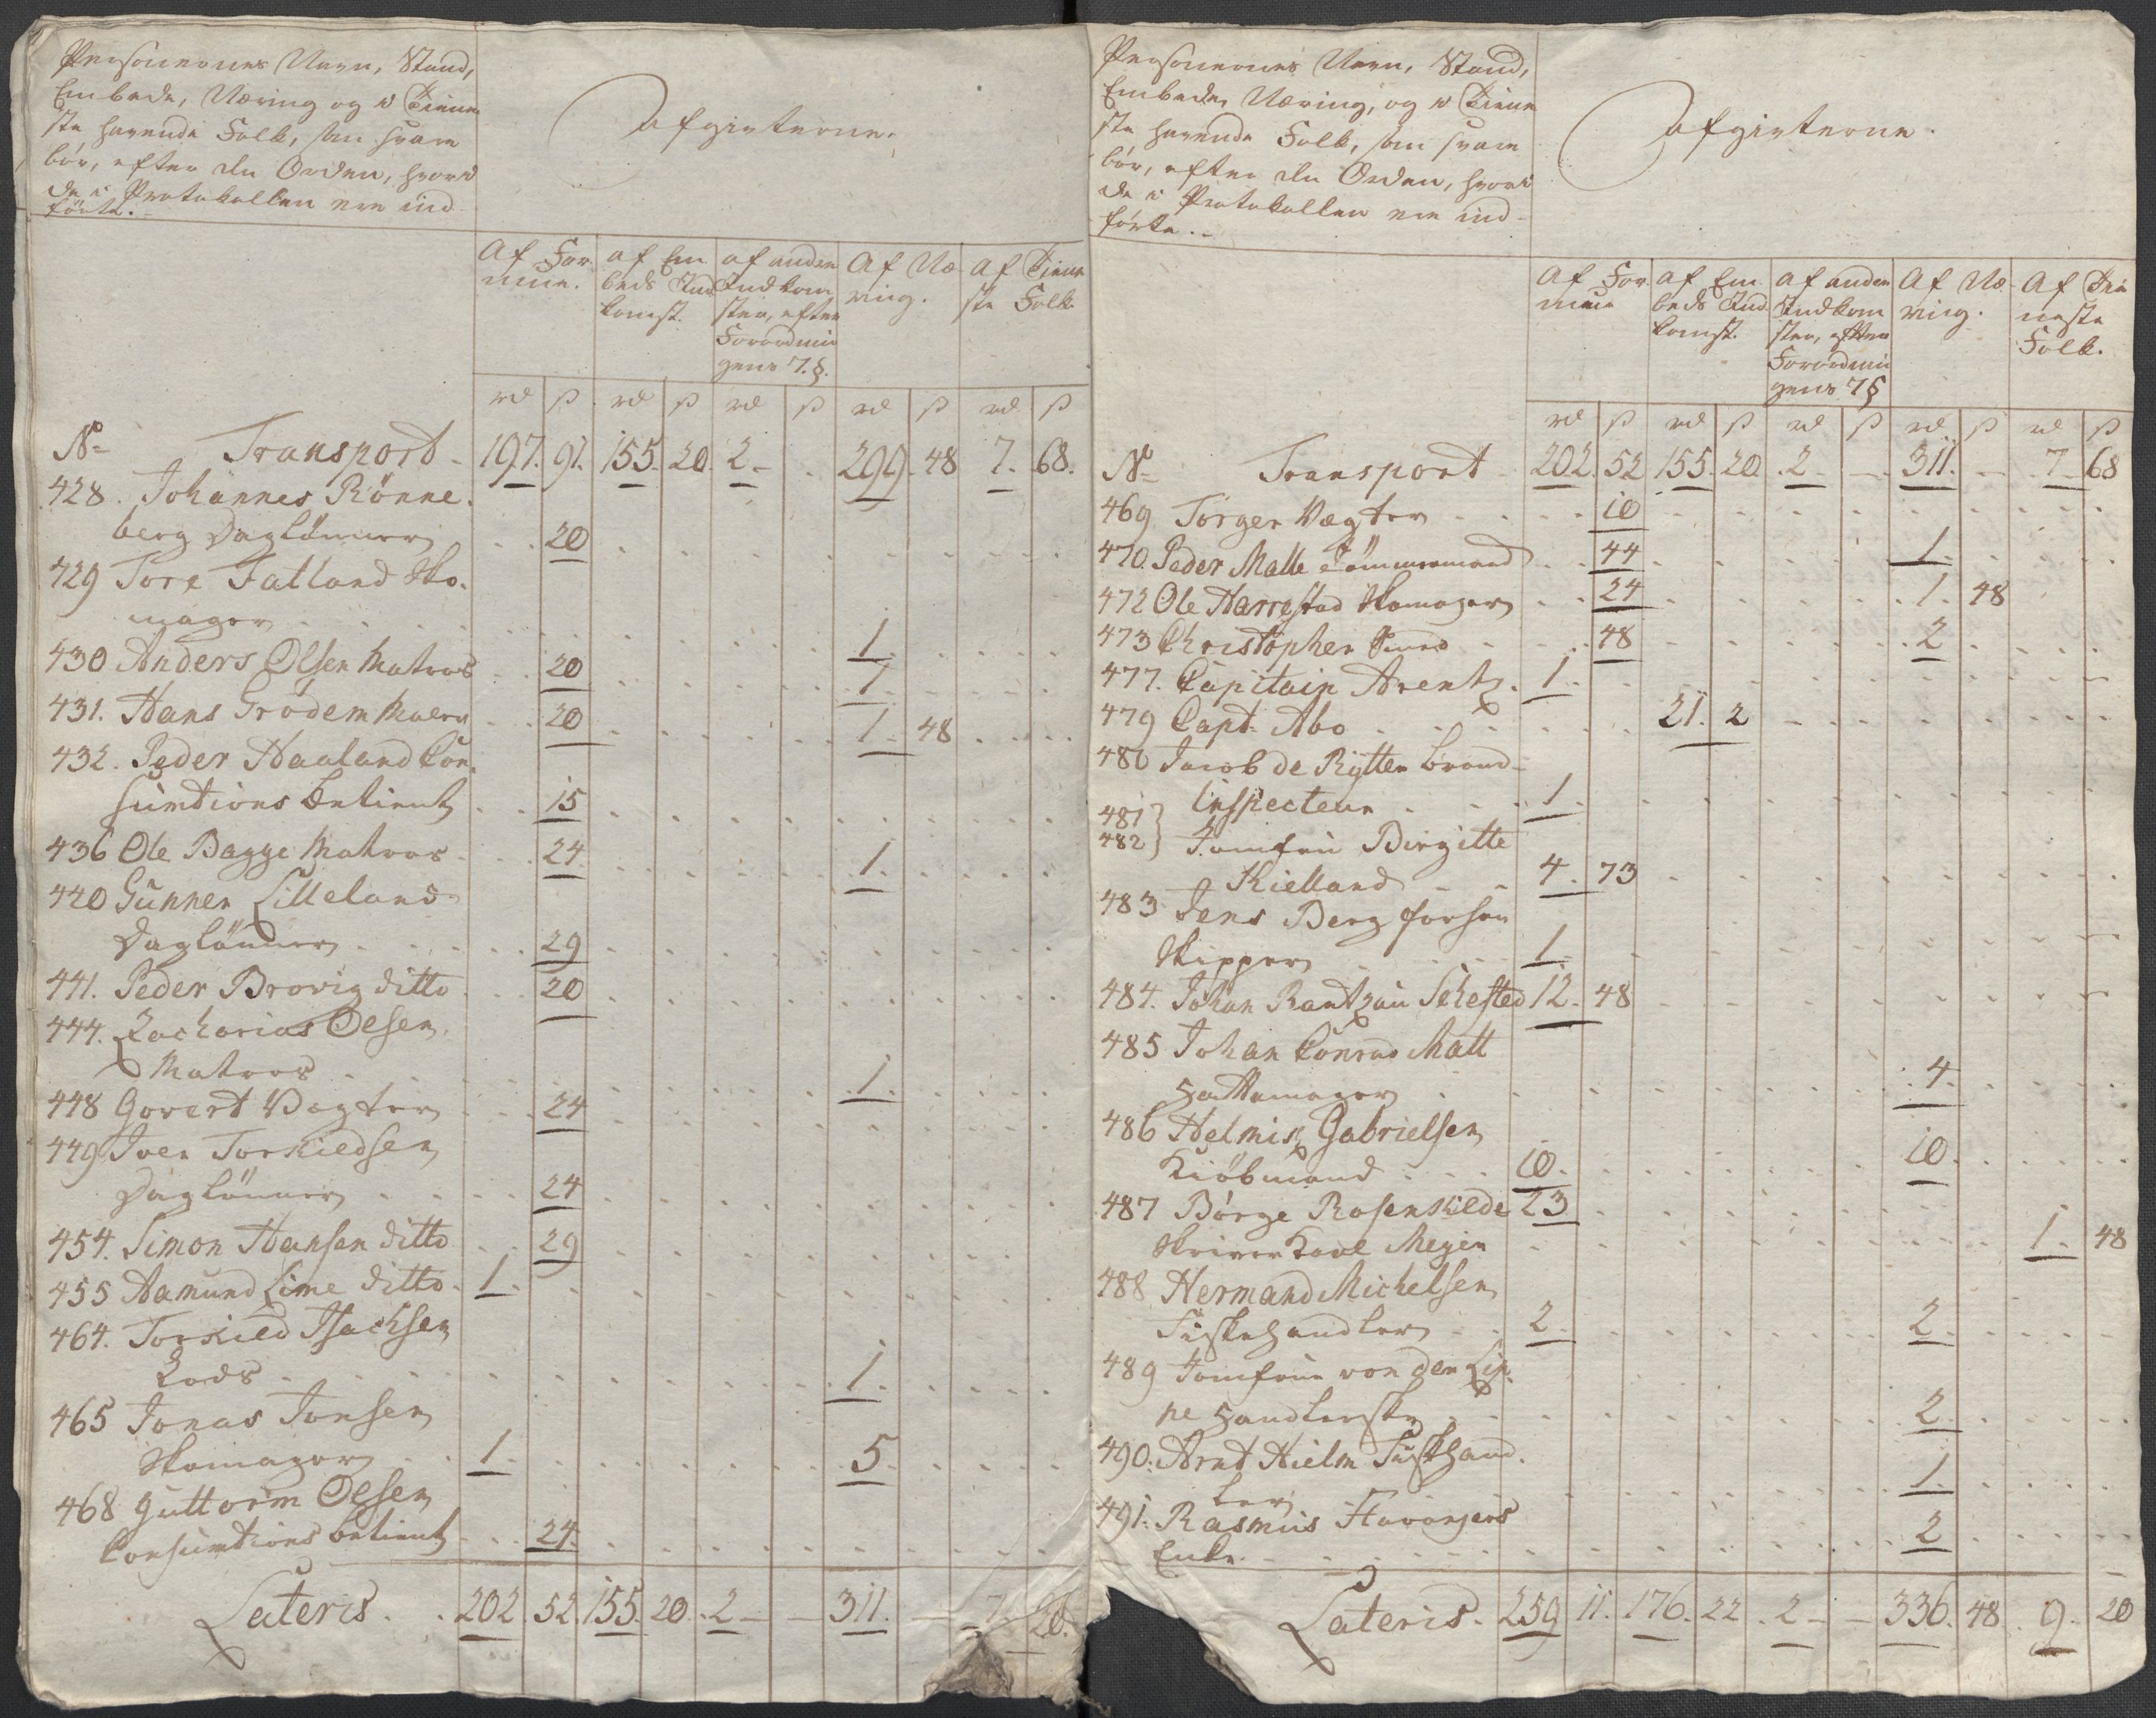 Personernes Navn, Stand,
Embede, Næring og i Tiene
ste havende Folk, som svare
bör, efter den Orden, hvori
de i Protokollen ere ind-
förte.
Afgivterne.
Af For
mue.
af Em
beds Ind
komst.
af anden
Indkom
ster, efter
Forordnin
gens 7. §.
Af Næ
ring.
Af Tiene
ste Folk
rd ß rd ß rd ß rd ß rd ß
No Transport 197. 91. 155. 20. 2 - 299. 48 7. 68.
428. Johannes Rönne.
berg Daglönner 20
729 Tore Fatland Sko.
mager 1
430 Anders Olsen Matros 20 1
431. Hans Grödem Maler 20 1. 48
432. Peder Haaland Con.
sumtions betient 15
436 Ole Bagge Matros 24 1.
440 Gunner Lilleland
Daglönner 29
441. Peder Brovig ditto 20
444. Zacharias Olsen
Matros 1.
448 Govert Vegter 24
449 Iver Torkildsen
Daglönner 24
454. Simon Hansen ditto 29
455 Aamund Lime ditto 1.
464. Torkild Isachsen
Lods 1.
465 Jonas Jonsen
Skomager 1. 5
468 Guttorm Olsen
Consumtions betient 24
Lateris. 202. 52. 155. 20. 2 - - 311. - 7.
Personernes Navn, Stand,
Embede, Næring, og i Tiene
ste havende Folk, som svare
bör, efter den Orden, hvori
de i Protokollen ere ind-
förte.
Afgivterne.
Af For
mue
af Em
beds Ind
komst.
af anden
Indkom
ster, efter
Forordnin
gens 7 §
Af Næ
ring.
Af Tie
neste
Folk.
rd ß rd ß rd ß rd ß rd ß
No Transport 202. 52 155. 20. 2 - - 311. - 7 68
469 Törger Vægter 10
470. Peder Malle Tömmermand 44 1.
472 Ole Harrestad Skomager 24 1. 48
473 Christopher Smed 48 2
477. Capitain Arentz. 1.
479 Capt. Abo 21. 2
480 Jacob de Rytter brand-
481} Inspecteur 1.
482} Jomfru Birgitte
Kielland 4. 73
483 Jens Berg forhen
Skipper 1.
484. Johan Rantzau Sehested 12. 48
485 Johan Conrad Matt
Hattemager 4.
486 Helmich Gabrielsen
Kiöbmand 10. 10.
487 Börge Rosenkilde 23
Skriver Karl Meyer 1. 48
488 Hermand Michelsen
Fiskehandler 2. 2.
489 Jomfrue von der Lip.
pe Handlerske 2.
490. Arnt Hielm Fiskehand.
ler 1.
491. Rasmus Stavangers
Enke 2
Lateris. 259 11. 176. 22. 2 - - 336. 48. 9. 20